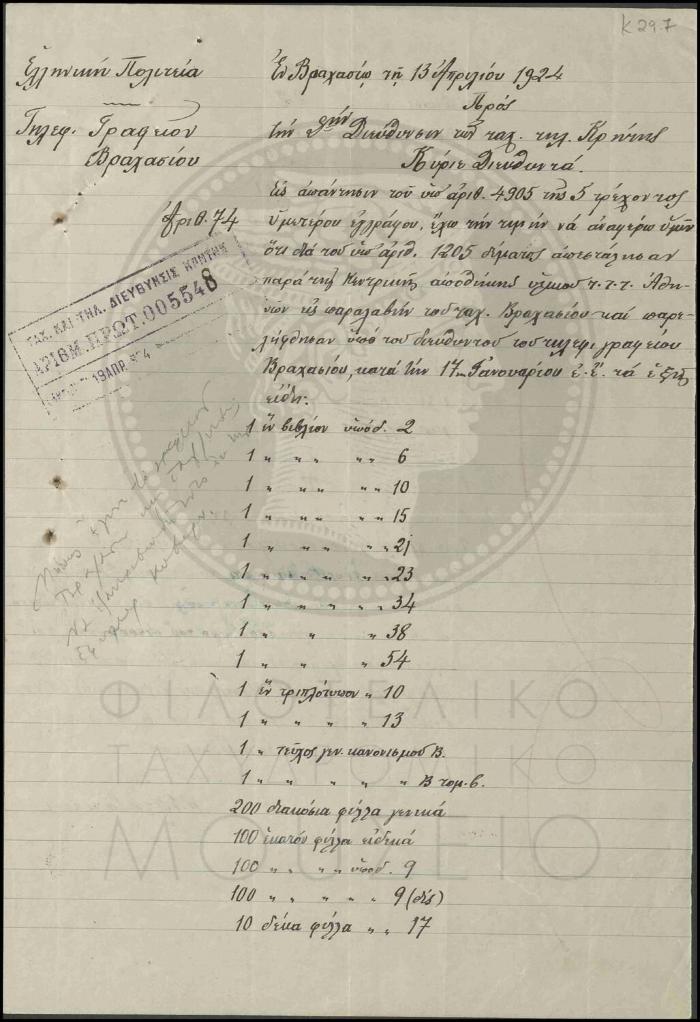 K 29.7
Ἑλληνική Πολιτεία
Ἐν Βραχασίῳ τῇ 13 Ἀπριλίου 1924
Πρός
Τηλεφ. Γραφεῖον
Βραχασίου
τήν Διεύθυνσιν τῶν ταχ. τηλ. Κρήτης
Κύριε Διευθυντά.
Ἀριθ. 74
Εἰς ἀπάντησιν τοῦ ὑπ' ἀριθ. 4905 τῆς 5 τρέχοντος
ὑμετέρου ἐγγράφου, ἔχω τήν τιμήν νά ἀναφέρω ὑμῖν
ὅτι διά τοῦ ὑπ' ἀριθ. 1205 δέματος ἀπεστάλησαν
παρά τῆς Κεντρικῆς ἀποθήκης ὑλικοῦ τ.τ.τ. Ἀθη-
νῶν εἰς παραλαβήν τοῦ ταχ. Βραχασίου καί παρε-
λήφθησαν ὑπό τοῦ διευθυντοῦ τοῦ τηλεφ. γραφείου
Βραχασίου, κατά τήν 17 Ἰανουαρίου ἐ.ἔ. τά ἑξῆς
εἴδη:
ΤΑΧ. ΚΑΙ ΤΗΛ. ΔΙΕΥΘΥΝΣΙΣ ΚΡΗΤΗΣ
ΑΡΙΘΜ. ΠΡΩΤ. 005548
19 ΑΠΡ.
1 ἕν βιβλίον ὑποδ. 2
1 " " " " " 6
1 " " " " " 10
1 " " " " " 15
1 " " " " " 21
1 " " " " " 23
1 " " " " " 34
1 " " " 38
1 " " " 54
1 ἕν τριπλότυπον " 10
1 " " " " 13
1 " τεῦχος γεν. κανονισμοῦ Β.
1 " " " " " Β τομ. β.
200 διακόσια φύλλα γενικά
100 ἑκατόν φύλλα εἰδικά
100 " " " ὑποδ. 9
100 " " " " " 9 (δίς)
10 δέκα φύλλα " " 17
ΦΙΛΟΤΕΛΙΚΟ
ΤΑΧΥΔΡΟΜΙΚΟ
ΜΟΥΣΕΙΟ